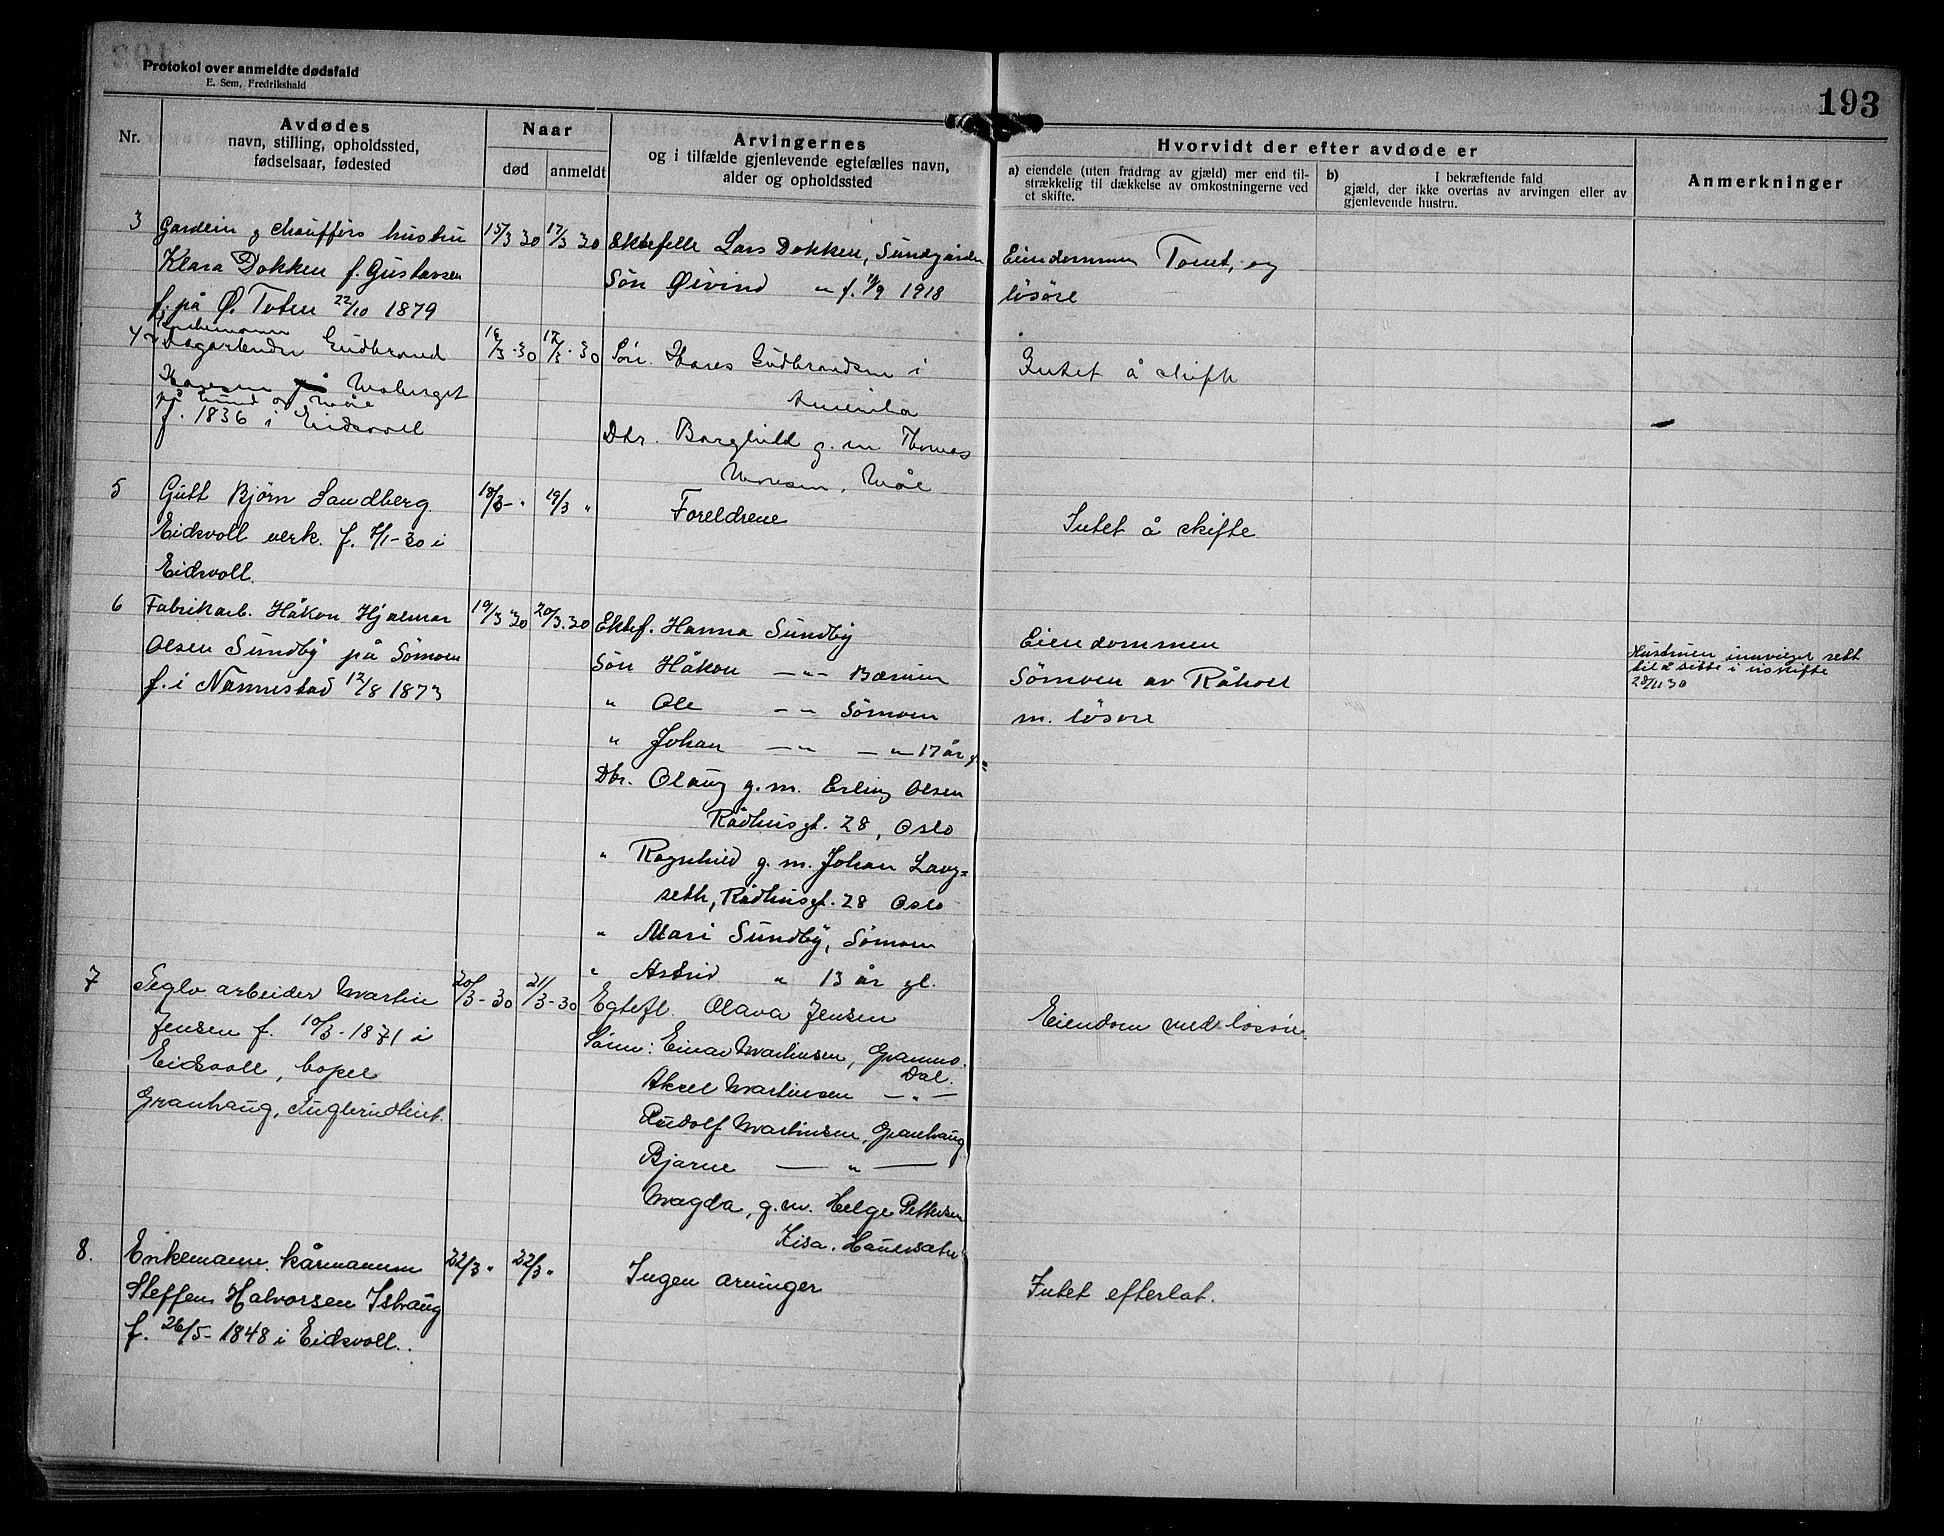 Protokol over anmeldte dødsfald
E. Sem, Fredrikshald
193
Nr.
Avdødes
navn, stilling, opholdssted,
fødselsaar, fødested
Naar
død
anmeldt
Arvingernes
og i tilfælde gjenlevende egtefælles navn,
alder og opholdssted
Hvorvidt der efter avdøde er
a) eiendele (uten fradrag av gjæld) mer end til-
strækkelig til dækkelse av omkostningerne ved
et skifte.
b) I bekræftende fald
gjæld, der ikke overtas av arvingen eller av
gjenlevende hustru.
Anmerkninger
3
Gardein g chaufførs hustru
Klara Dokken f. Gustavsen
f. på Ø. Toten 22/10 1879
15/3 30
17/3 30
Ektefelle Lars Dokken, Sundgården
Søn Øivind " f. 1918
Eiendommen Tomt, og
løsøre
4
Enkemann
Dagarbeider Gudbrand
Haresen Moberget
på Sund
f. 1836 i Eidsvoll
16/3-30
17/3-30
Søn Hares Gudbrandsen i
Amerika
Dtr. Borghild g. m Thomas
Intet å skifte
5
Gutt Bjørn Sandberg
Eidsvoll verk. f. 7/1-30 i
Eidsvoll.
18/3- "
19/3 "
Foreldrene
Intet å skifte
6
Fabrikarb. Håkon Hjalmar
Olsen Sundby på Sømoen
f. i Nannestad 12/8 1873
19/3 30
20/3.30
Ektef. Hanna Sundby
Søn Håkon —"— Bærum
" Ole —"— Sømoen
" Johan —"— —"— 17 år gl.
Dtr. Olaug g. m. Erling Olsen
Rådhusgt. 28, Oslo
" Ragnhild g. m. Johan Lang=
seth, Rådhusgt. 28 Oslo
" Mari Sundby, Sømoen
" Astrid " 13 år gl.
Eiendommen
Sømoen av Råholt
m. løsøre
Hustruen innvilget rett
til å sitte i uskifte
28/11 30
7
Teglv. arbeider Martin
Jensen f. 10/3-1871 i
Eidsvoll, bopel
Granhaug,
20/3-30
21/3-30
Egtefl. Olava Jensen
Sønn: Einar Martinsen,
Dal.
Aksel Martinsen —"—
Rudolf Martinsen, Granhaug
Bjarne —"—
Magda, g.m. Helge Pettersen
Eiendom med løsøre
8.
Enkemann kårmann
Steffen Halvorsen Ishaug
f. 26/5-1848 i Eidsvoll.
22/3 "
22/3 "
Ingen arvinger
Intet efterlat.